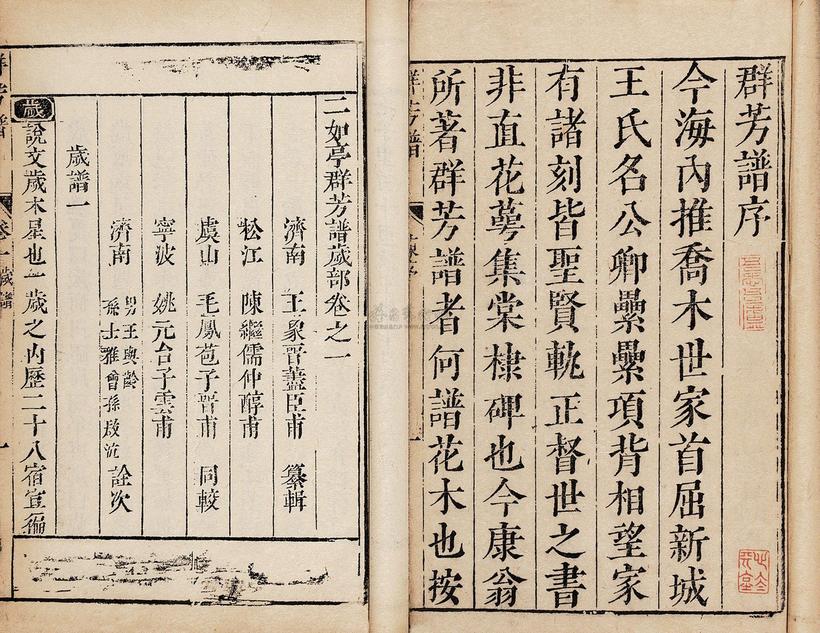 群芳譜序
今海內推喬木世家首屈新城
王氏名公卿纍纍項背相望家
有諸刻皆聖賢軌正督世之書
非直花萼集棠棣碑也今康翁
所著群芳譜者何譜花木也按
群芳譜
二如亭群芳譜歲部卷之一
濟南 王象晉藎臣甫 纂輯
松江 陳繼儒仲醇甫
虞山 毛鳳苞子晉甫 同較
寧波 姚元台子雲甫
濟南 男王與齡
孫士雅曾孫啟汸 詮次
歲譜一
歲 說文歲木星也一歲之內歷二十八宿宣徧
群芳譜 卷一 歲譜 一